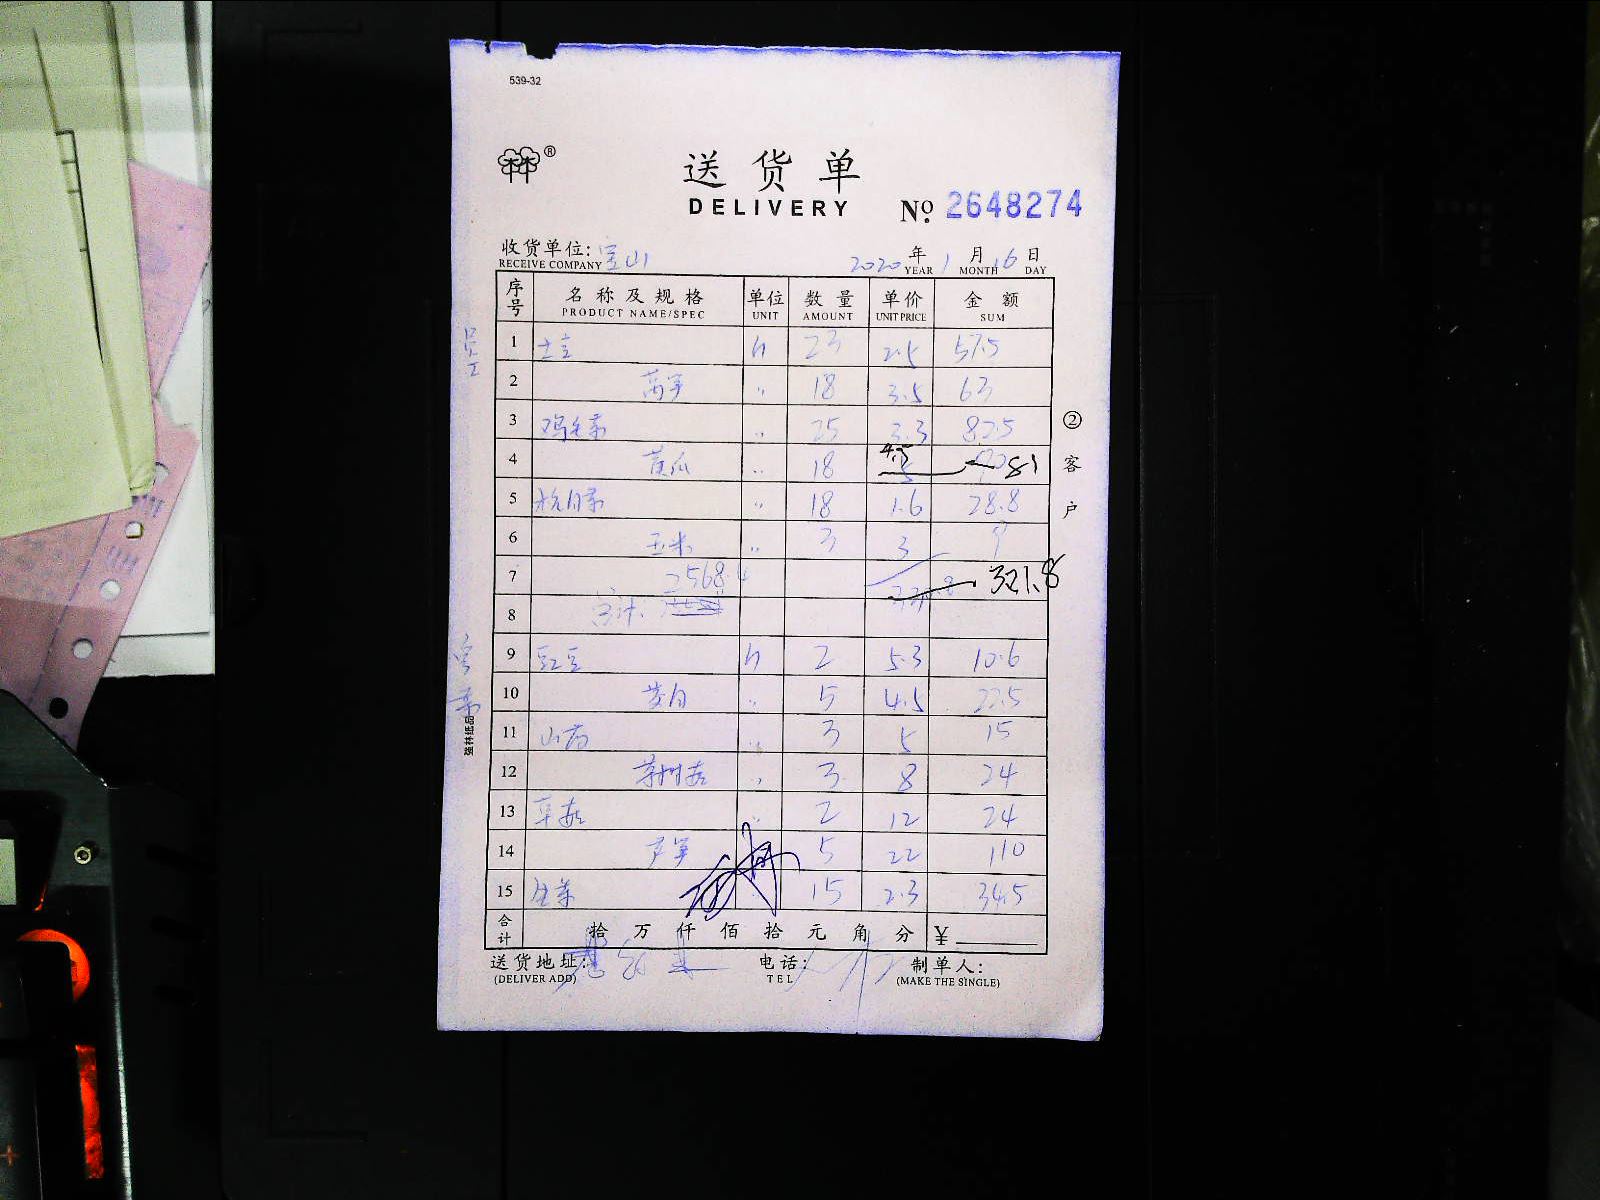 539-32
®
送货单
DELIVERY
No. 2648274
收货单位: 宝山 2020年1月16日
RECEIVE COMPANY YEAR MONTH DAY
序号 名称及规格 单位 数量 单价 金额
PRODUCT NAME/SPEC UNIT AMOUNT UNIT PRICE SUM
员工
1 土豆 斤 23 2.5 57.5
2 莴笋 〃 18 3.5 63
3 鸡毛菜 〃 25 3.3 82.5
4 黄瓜 〃 18 4.5 5 90 81
5 杭白菜 〃 18 1.6 28.8
6 玉米 〃 3 3 9
7 2568.4 321.8
8 合计
9 豇豆 斤 2 5.3 10.6
10 茭白 〃 5 4.5 22.5
11 山药 〃 3 5 15
12 茶树菇 〃 3 8 24
13 草菇 〃 2 12 24
14 芦笋 5 22 110
15 生菜 15 2.3 34.5
合计 拾 万 仟 佰 拾 元 角 分 ¥
送货地址: 电话: 制单人:
(DELIVER ADD) TEL (MAKE THE SINGLE)
②客户
强林纸品